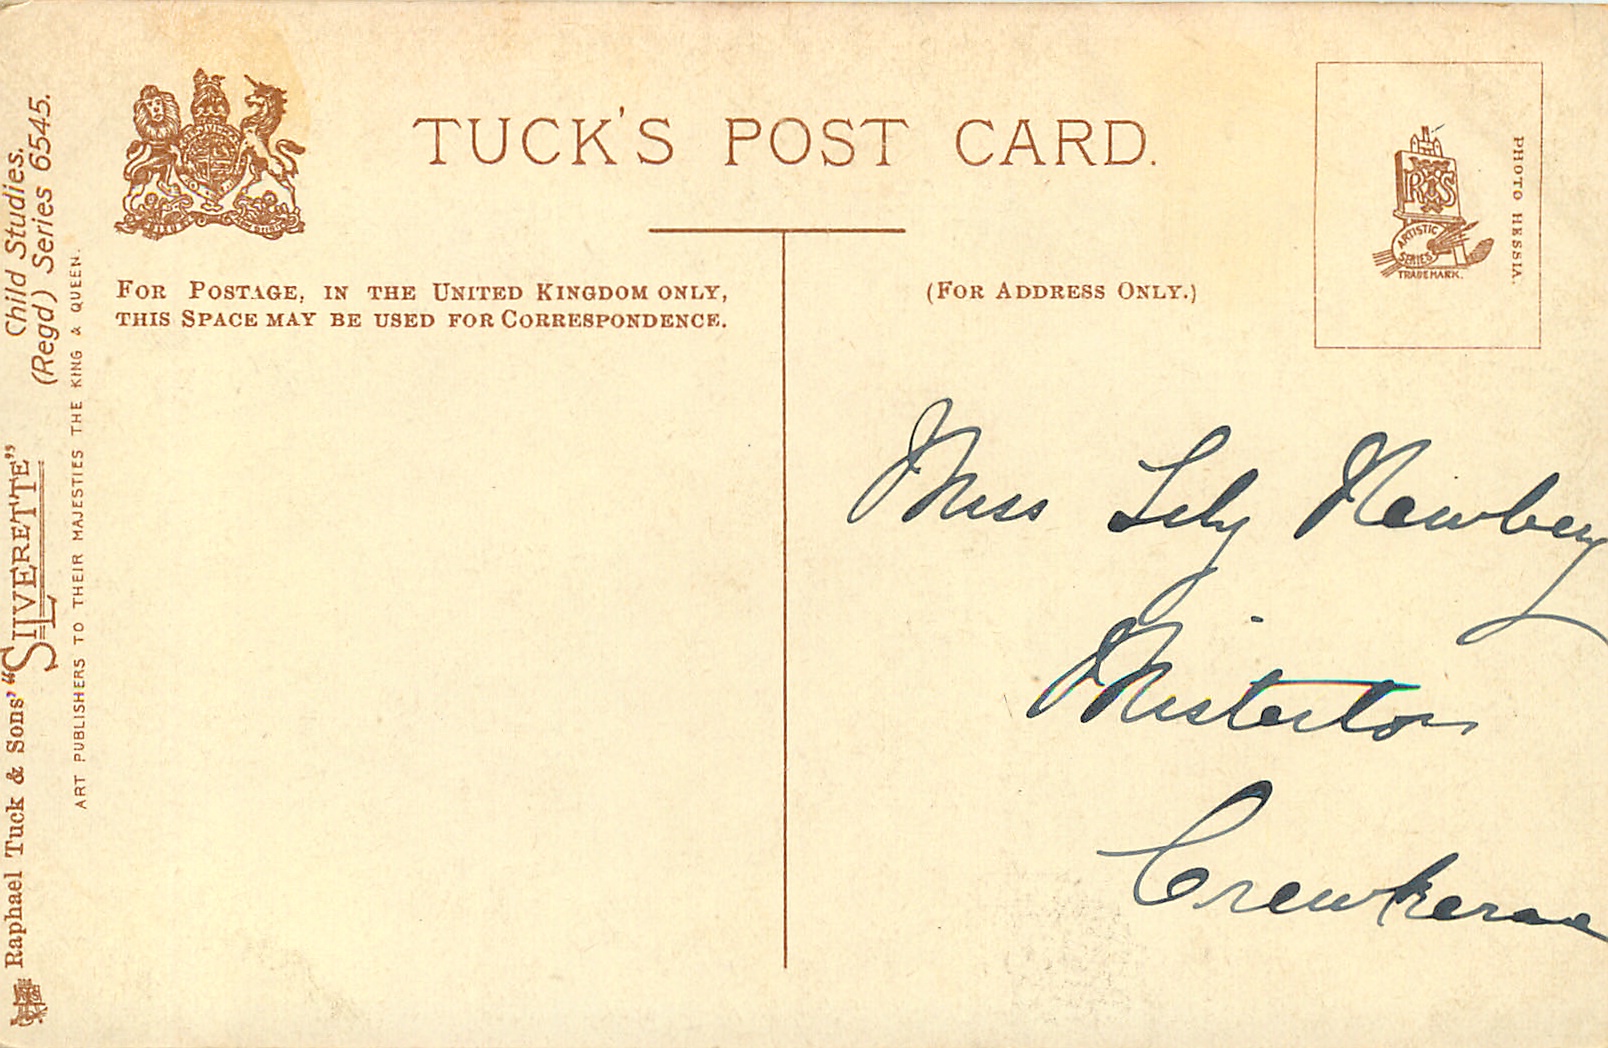 TUCK'S POST CARD.
FOR POSTAGE, IN THE UNITED KINGDOM ONLY,
THIS SPACE MAY BE USED FOR CORRESPONDENCE.
(FOR ADDRESS ONLY.)
R S
ARTISTIC
SERIES
TRADE MARK.
PHOTO HESSIA.
Miss Lily Newbery
Misterton
Crewkerne
Child Studies.
(Regd) Series 6545.
Raphael Tuck & Sons' "SILVERETTE"
ART PUBLISHERS TO THEIR MAJESTIES THE KING & QUEEN.